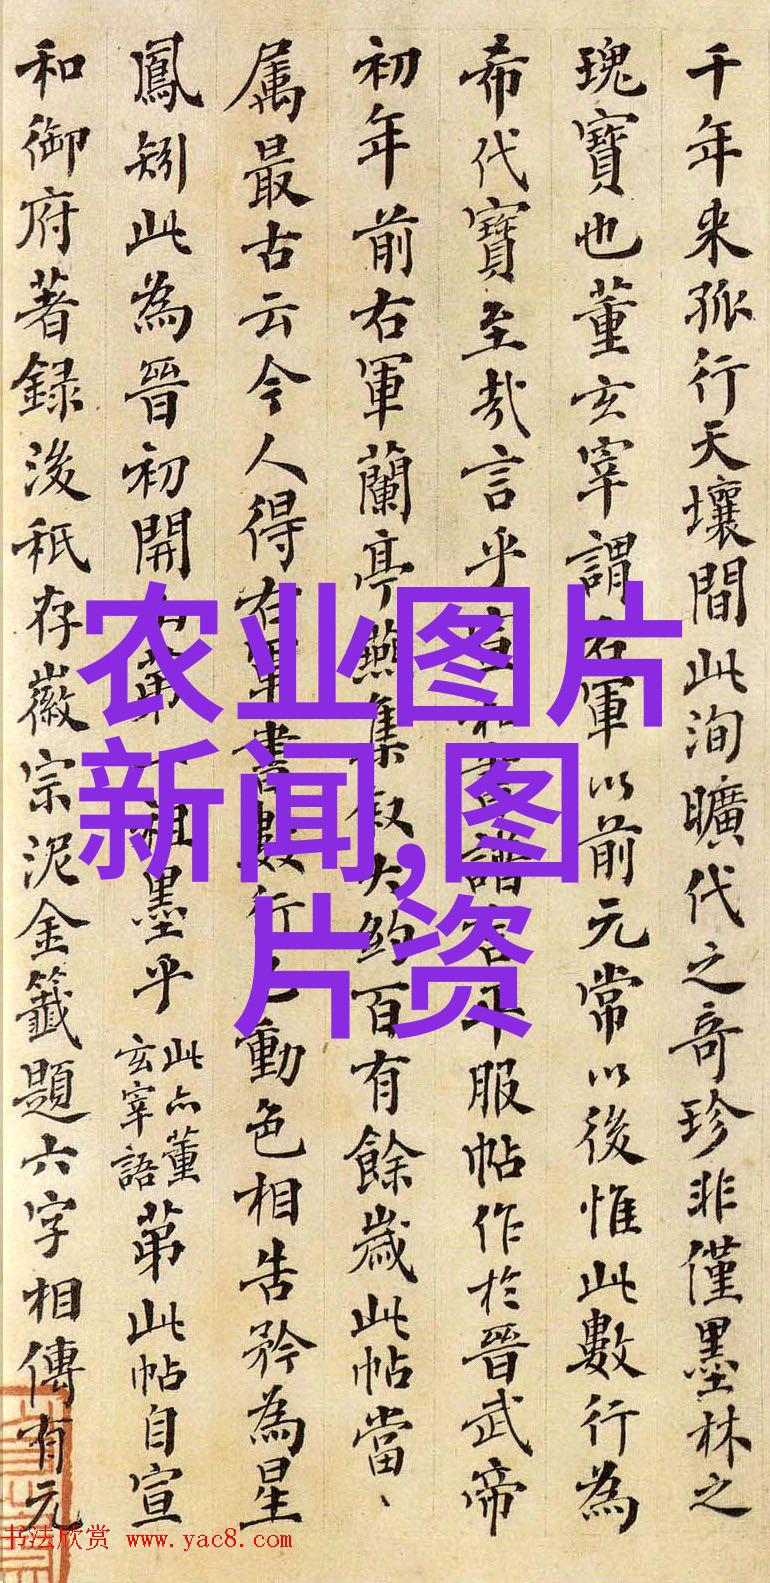 千年来孤行天壤間此洵曠代之奇珍非僅墨林之
瑰寶也董玄宰謂右軍以前元常以後惟此數行為
希代寶至哉言乎宣和書譜言平服帖作於晉武帝
初年前右軍蘭亭燕集叙大約百有餘歲此帖當、
属最古云今人得右軍書數行動色相告矜為星
鳳矧此為晉初開山第一祖墨乎
此亦董
玄宰語
第此帖自宣
和御府著録後秖存徽宗泥金籤題六字相傳有元
农业图片
新闻,图
片资
书法欣赏 www.yac8.com